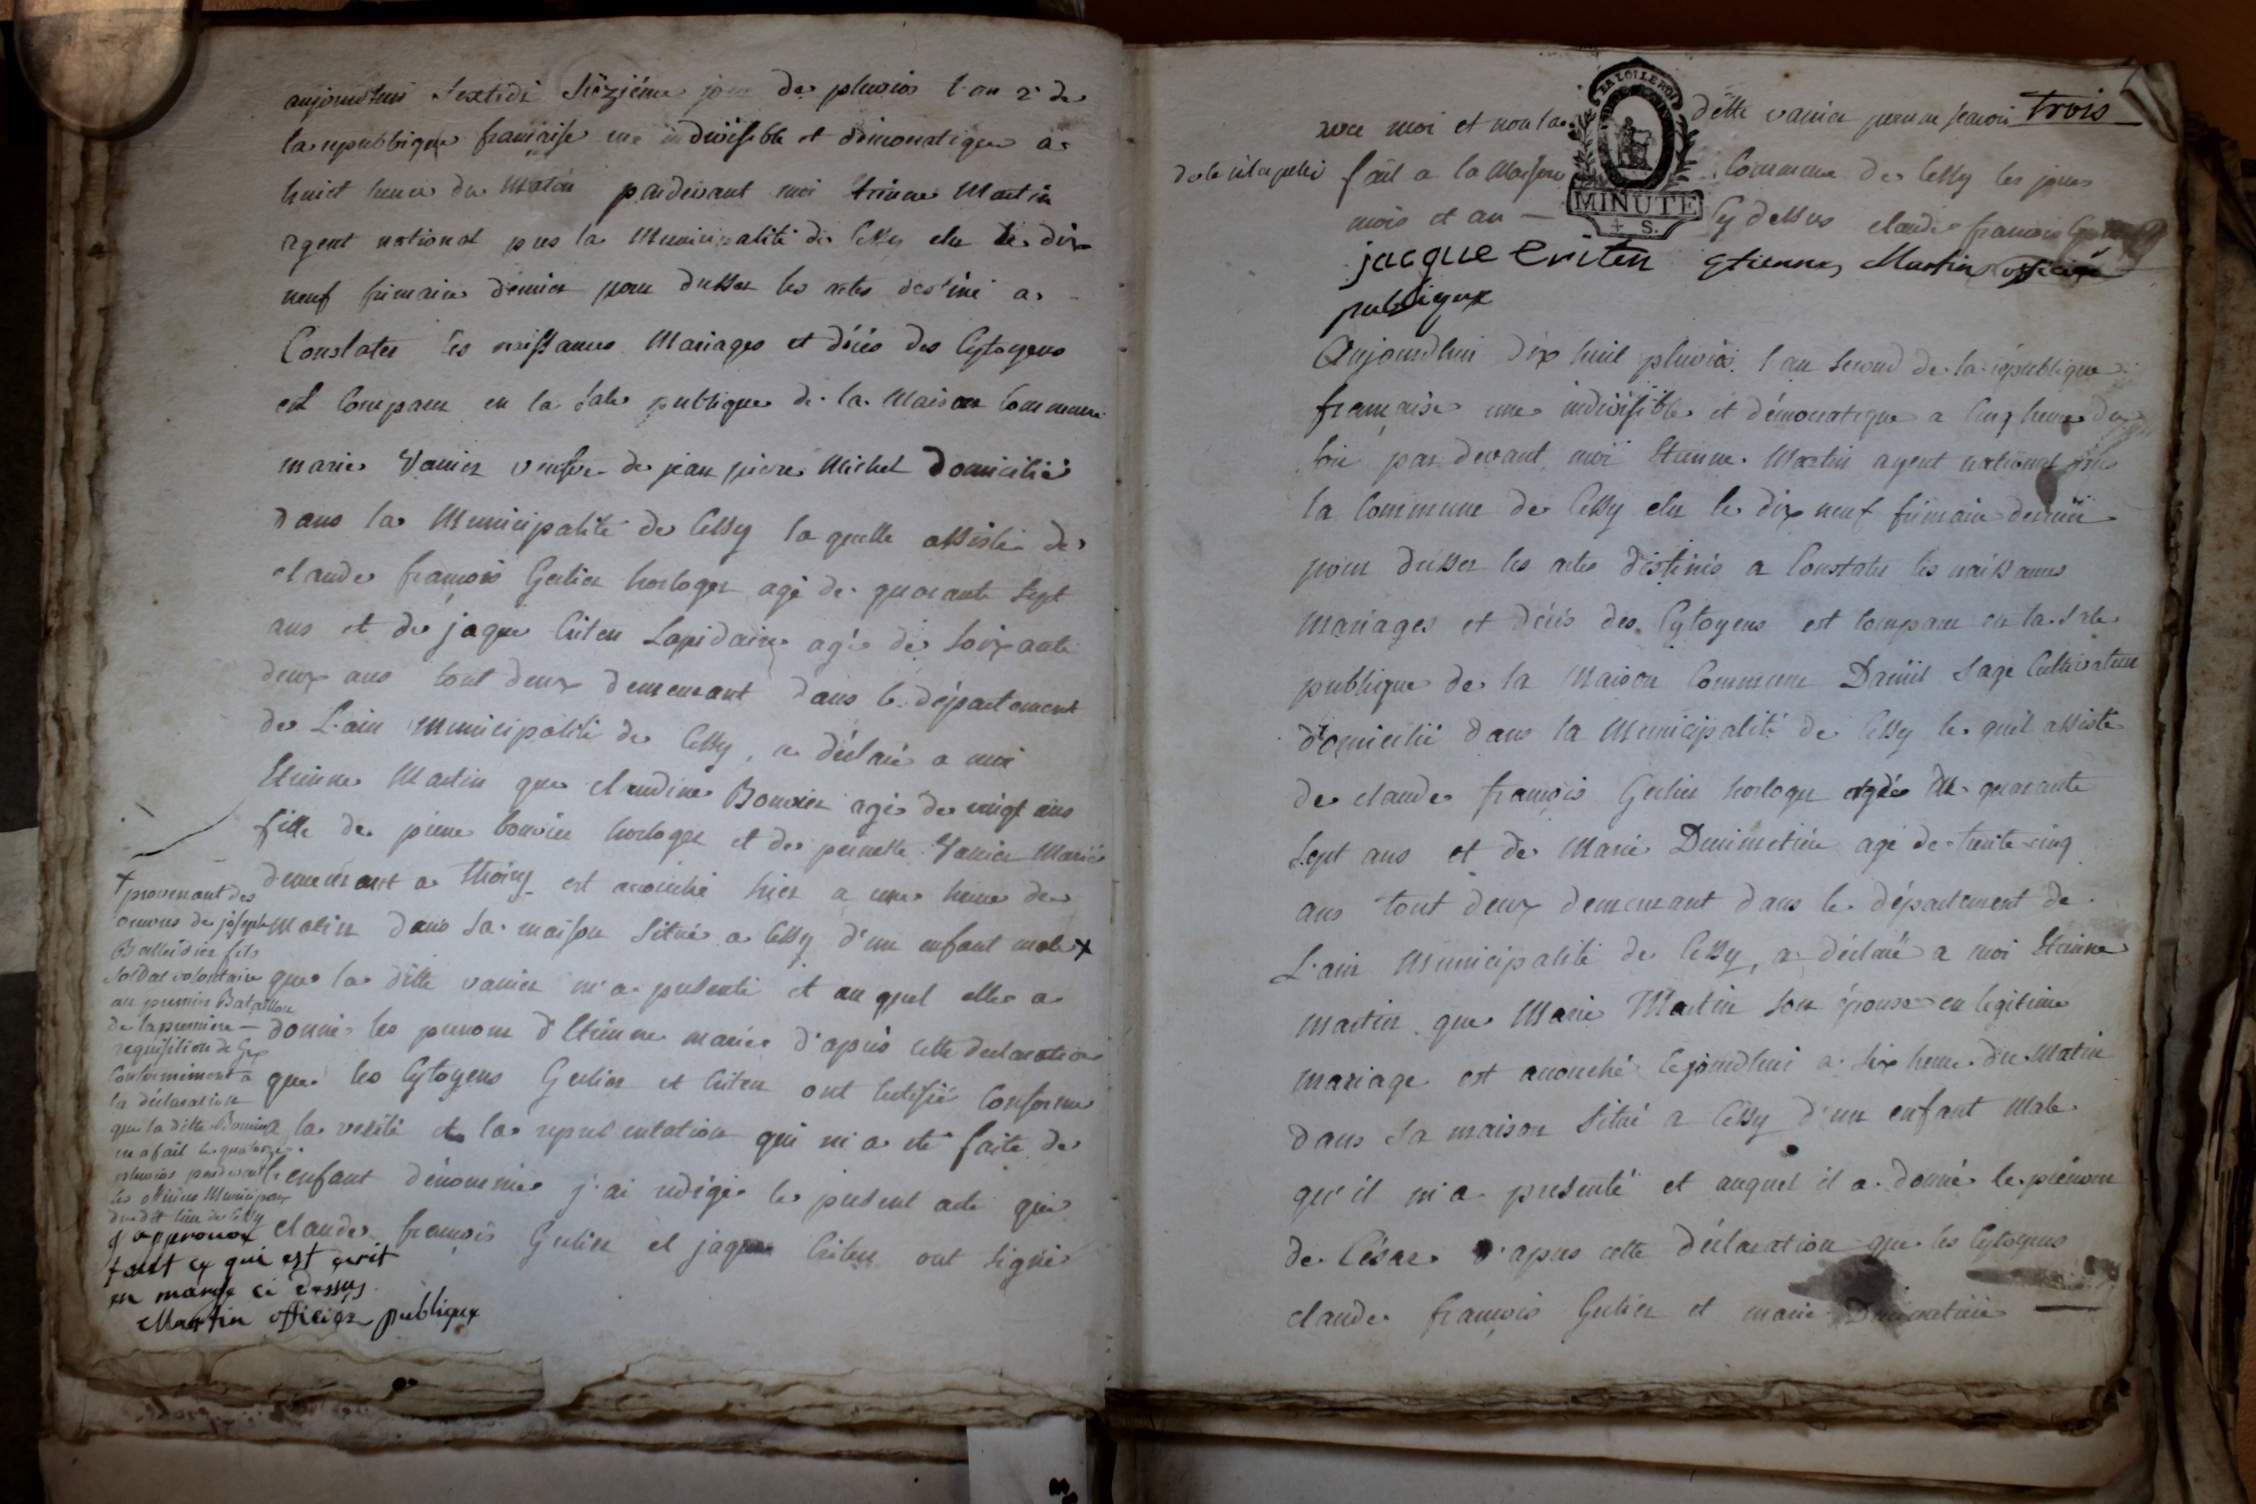 aujourdhui Sextidi Sëizjéme jour de pluvios l'an 2e de
la republique française une indivisible et démocratique a
huict heure du Matin pardevant moi Etienne Martin
agent national pres la Municipalité de Cessy elu le dix
neuf frimaire dernier pour dresser les actes destiné a
Constater les naissances Mariages et décès des Cytoyens
est Comparu en la Sale publique de la Maison Commune
marie Vanier veufve de jean pierre Michel Domicilié
dans la Municipalité de Cessy la quelle assistée de
claude françois Gerlier horloger agé de quarante sept
ans et de jaque Criten Lapidaire agé de Soixante
deux ans tout deux demeurant dans le département
de L'ain Municipalité de Cessy, a déclaré a moi
Etienne Martin que claudine Bouvier agé de vingt ans
fille de pierre bouvier horloger et de pernette Vanier Marié
demeurant a Thoiry est acouché hier a une heure de
Matin dans sa maison Situé a Cessy d'un enfant male x
que la ditte vanier m'a presenté et au quel elle a
donné les prenom d'Etienne marie d'après cette declaration
que les Cytoyens Gerlier et Criten ont certifié Conforme
a la verité et la representation qui m'a été faite de
l'enfant dénommé j'ai redigé le present acte que
claude françois Gerlier et jaque Criten ont signé
x provenant des
œuvres de joseph
Balleidier fils
soldat volontaire
au premier Bataillon
de la premiere
requisition de Gex
Conformément a
la déclaration
que la ditte Bouvier
m a fait le quatorze
pluvios pardevant
les officiers Municipaux
du dit lieu de Cessy
J approuve
tout cy qui est ecrit
en marge ci dessus
Martin officier publique
trois
avec moi et non la ditte vanier pour ne savoir
de ce interpelé fait a la Maison Commune de Cessy les jours
MINUTE
mois et an cy dessus claude françois Gerlier
jacque Criten Etienne Martin officier
publique
Aujourdhui dix huit pluvios l'an second de la république
française une indivisible et démocratique a cinq heure du
soir par devant moi Etienne Martin agent national pres
la Commune de Cessy elu le dix neuf frimaire dernier
pour dresser les actes destinés a Constater les naissances
Mariages et décès des Cytoyens est comparu en la Sale
publique de la Maison Commune Daniel Sage Cultivateur
domicilié dans la Municipalité de Cessy le quel assisté
de claude françois Gerlier horloger agée de quarante
sept ans et de Marie agé de trente cinq
ans tout deux demeurant dans le département de
L'ain Municipalité de Cessy, a déclaré a moi Etienne
Martin que Marie Martin son épouse en légitime
mariage est acouché cejourdhui a six heure du Matin
dans sa maison Situé a Cessy d'un enfant Male
qu'il m'a presenté et auquel il a donné le prénom
de César d'apres cette déclaration que les Cytoyens
claude françois Gerlier et marie